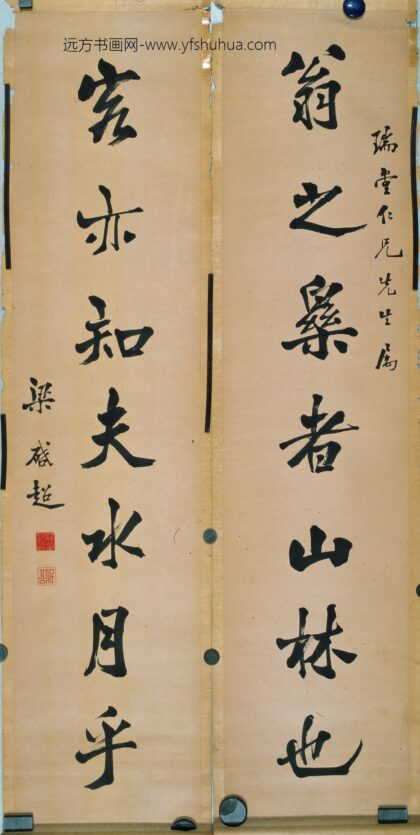 远方书画网-www.yfshuhua.com
瑞堂仁兄先生属
翁之樂者山林也
客亦知夫水月乎
梁啟超